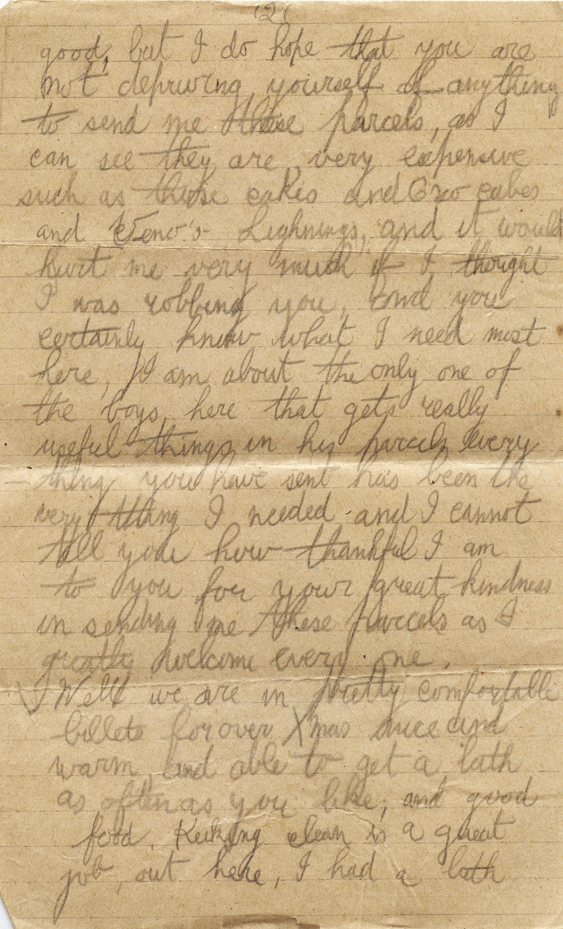 (2)
good, but I do hope that you are
not depriving yourself of anything
to send me these parcels, as I
can see they are very expensive
such as those cakes and Oxo cubes
and Keno's Lighnings, and it would
hurt me very much if I thought
I was robbing you, and you
certainly know what I need most
here, I am about the only one of
the boys, here that gets really
useful things in his parcels every
thing you have sent has been the
very thing I needed and I cannot
tell you how thankful I am
to you for your great kindness
in sending me these parcels as I
greatly welcome every one.
Well we are in pretty comfortable
billets for over Xmas nice and
warm, and able to get a bath
as often as you like, and good
food. Keeking clean is a great
job, out here, I had a bath